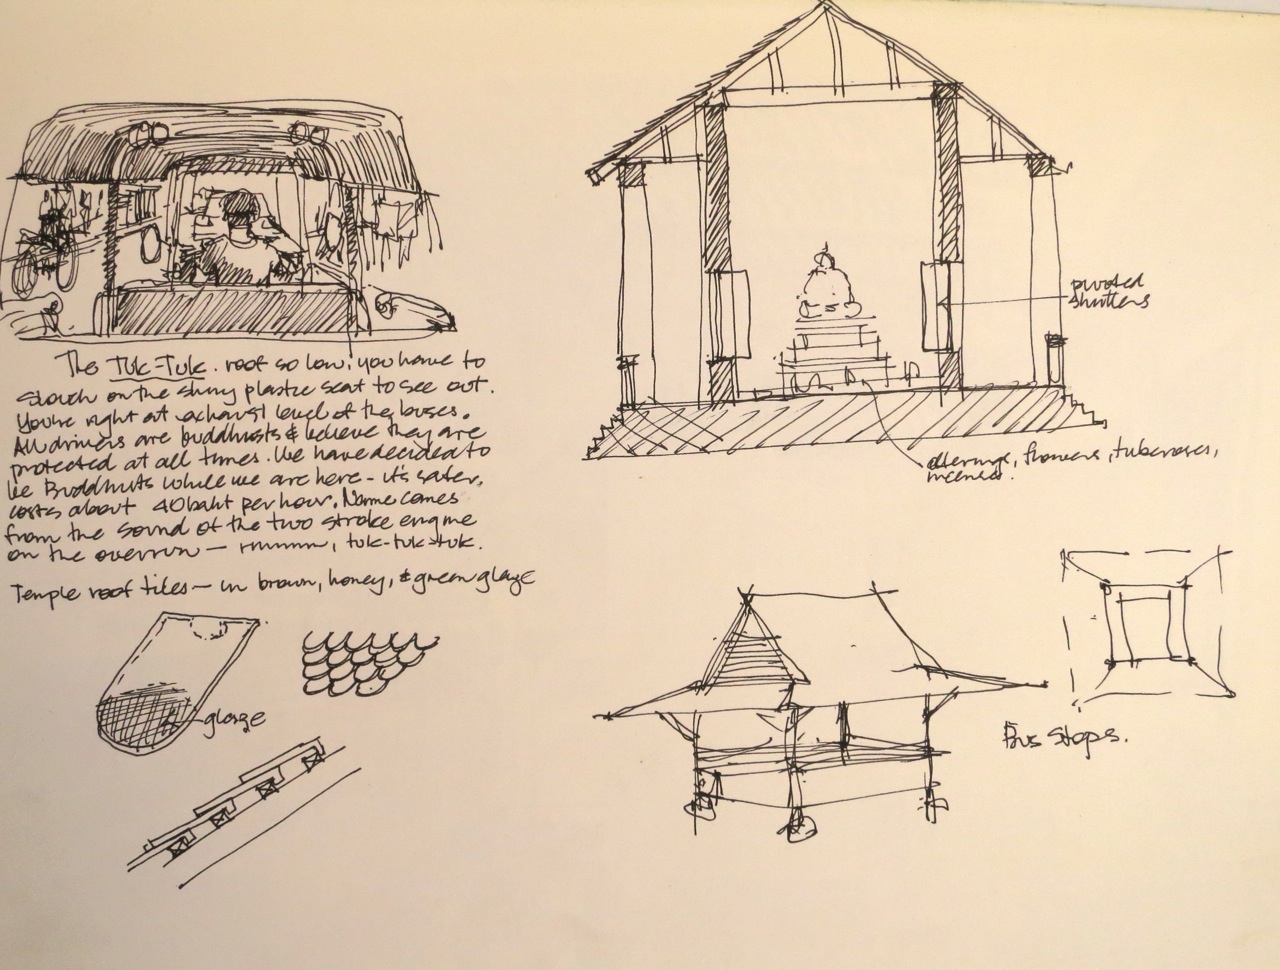 The Tuk-Tuk. roof so low, you have to
slouch on the shiny plastic seat to see out.
You're right at exhaust level of the buses.
All drivers are buddhists & believe they are
protected at all times. We have decided to
be Buddhists while we are here - it's safer.
costs about 40 baht per hour. Name comes
from the sound of the two stroke engine
on the overrun — rmmmm, tuk-tuk-tuk.
Temple roof tiles — in brown, honey, & green glaze
glaze
pivoted
shutters
offerings, flowers, tuberoses,
incense.
Bus Stops.